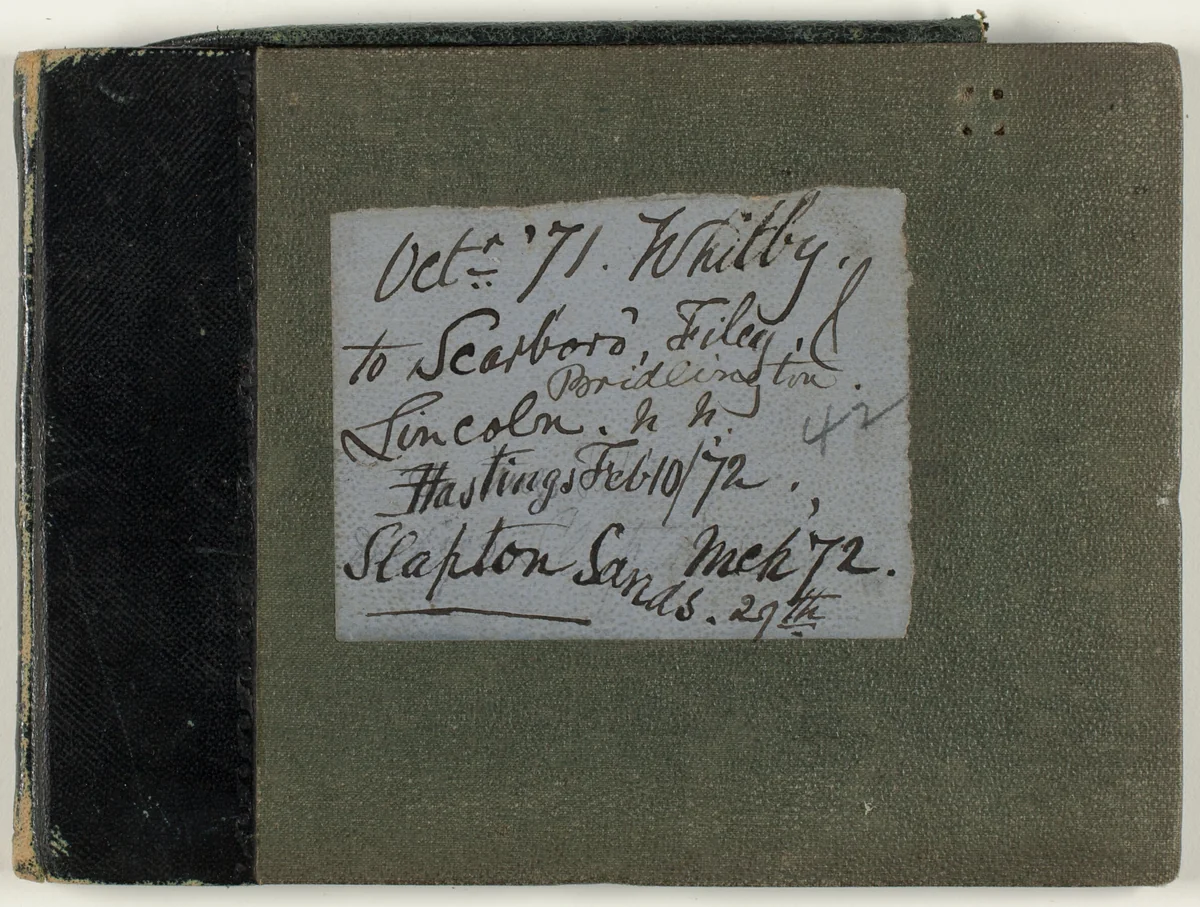 Octr '71. Whitby.
to Scarboro', Filey. &
Bridlington.
Lincoln. h h.
42
Hastings Feb 10/72.
Slapton Sands. Mch '72.
29th